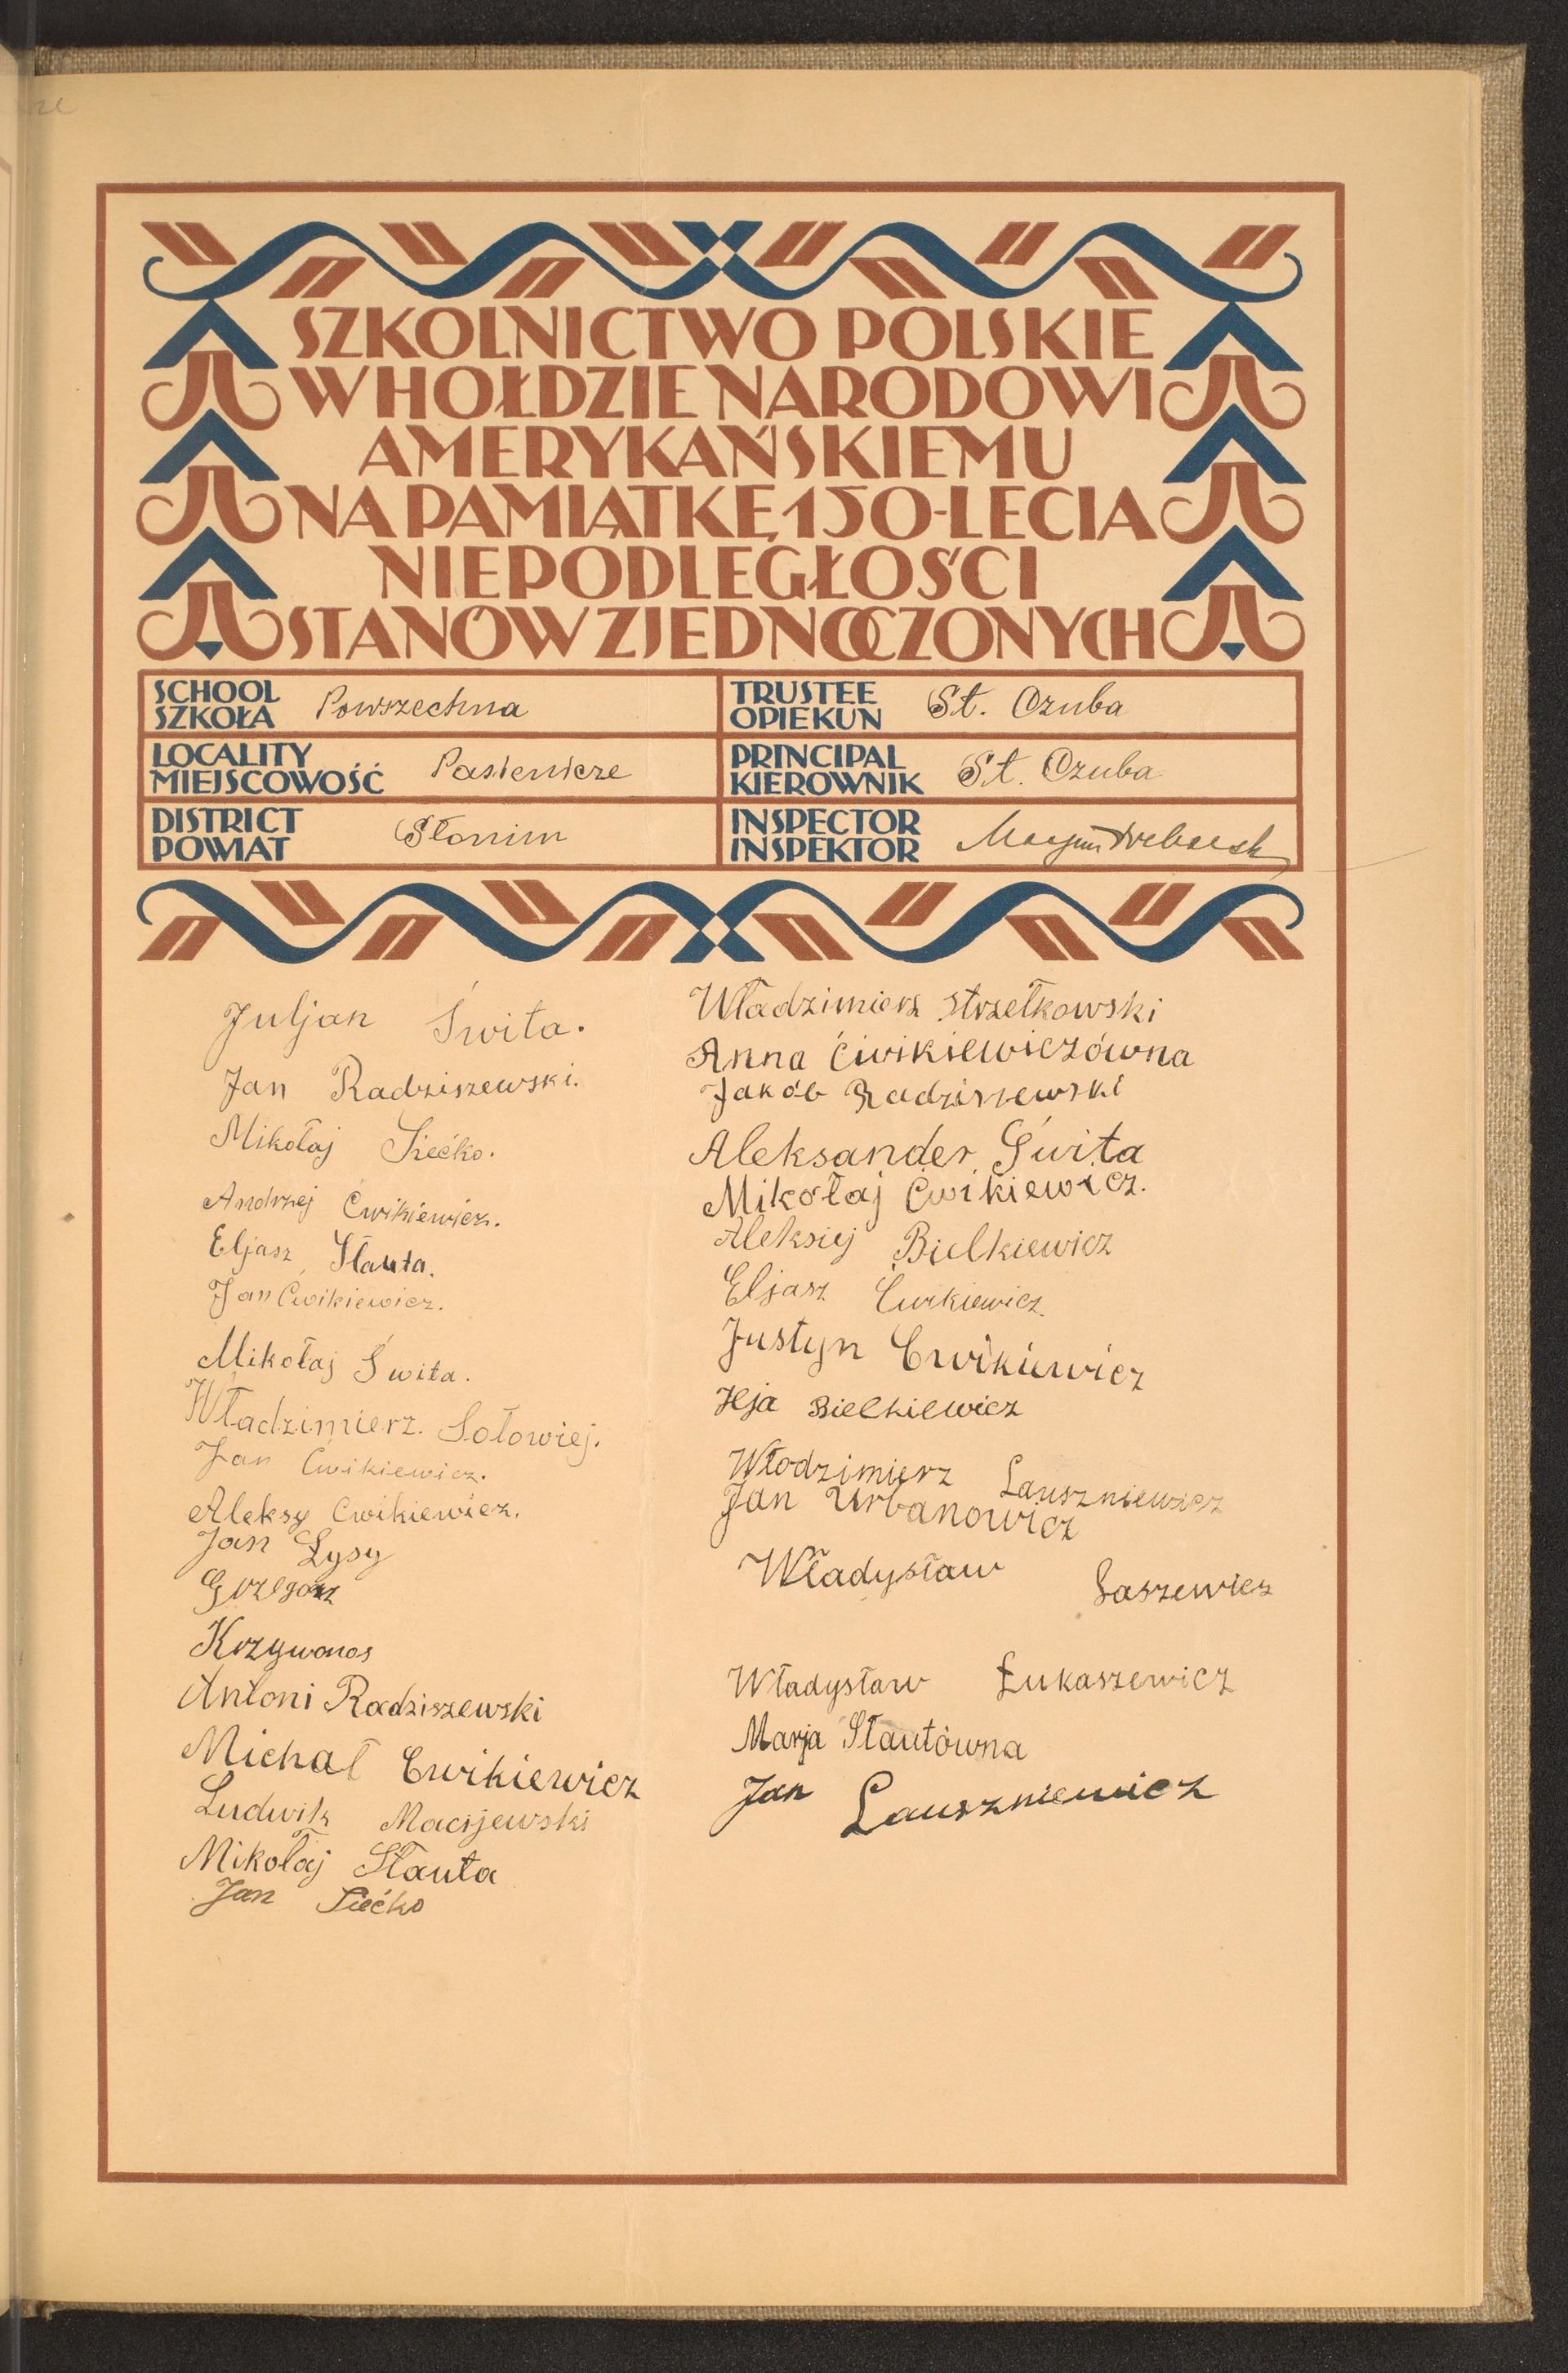 SZKOLNICTWO POLSKIE
W HOŁDZIE NARODOWI
AMERYKAŃSKIEMU
NA PAMIĄTKĘ 150-LECIA
NIEPODLEGŁOŚCI
STANÓW ZJEDNOCZONYCH
SCHOOL
SZKOŁA Powszechna
TRUSTEE
OPIEKUN St. Czuba
LOCALITY
MIEJSCOWOŚĆ Pasienicze
PRINCIPAL
KIEROWNIK St. Czuba
DISTRICT
POWIAT Słonim
INSPECTOR
INSPEKTOR
Juljan Świta.
Jan Radziszewski.
Mikołaj Siećko.
Andrzej Ćwikiewicz.
Eljasz Słauta.
Jan Cwikiewicz.
Mikołaj Świta.
Władzimierz. Sołowiej.
Jan Ćwikiewicz.
Aleksy Cwikiewicz.
Jan Łysy
Grzegorz
Krzywonos
Antoni Radziszewski
Michał Cwikiewicz
Ludwik Maciejewski
Mikołaj Słauta
Jan Siećko
Władzimierz Strzełkowski
Anna Ćwikiewiczówna
Jakób Radziszewski
Aleksander Świta
Mikołaj Ćwikiewicz.
Aleksiej Bielkiewicz
Eljasz Ćwikiewicz
Justyn Cwikiewicz
Ilja Bielkiewicz
Włodzimierz Lauszniewicz
Jan Urbanowicz
Władysław Saszewicz
Władysław Łukaszewicz
Marja Słautówna
Jan Lauszniewicz